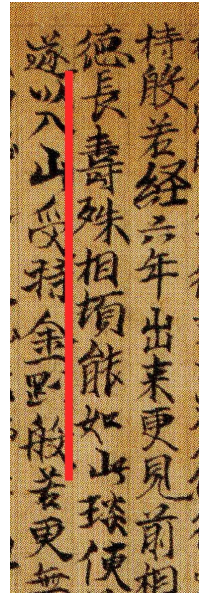 持般若経六年出来更見前相
徳長壽殊相頃能如此琰便
遂以入山受持金剛般若更無